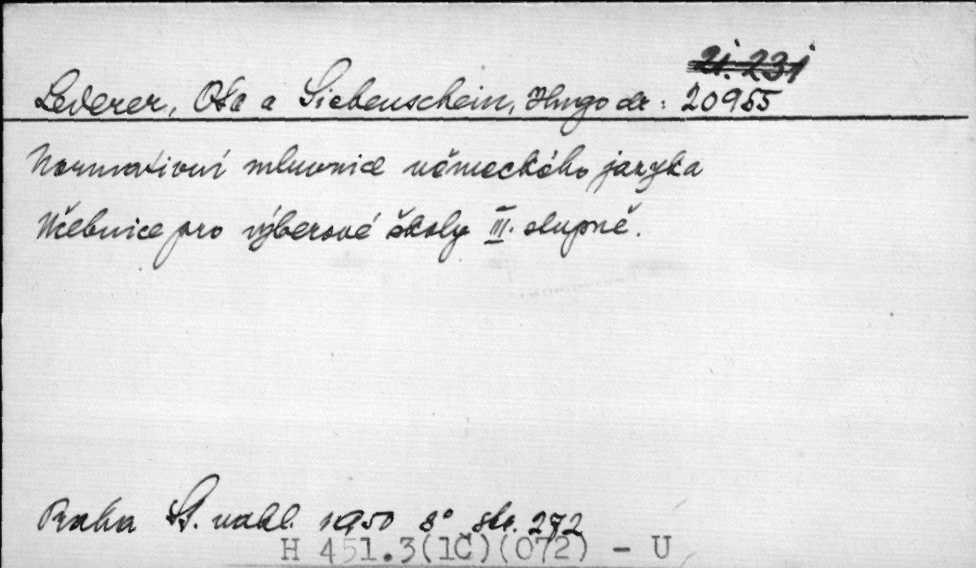 21.231
Lederer, Ota a Siebenschein, Hugo dr: 20955
Normativní mluvnice německého jazyka
Učebnice pro výberové školy III. stupně.
Praha St. nakl. 1950 8° str. 272
H 451.3(1Č)(072) - U